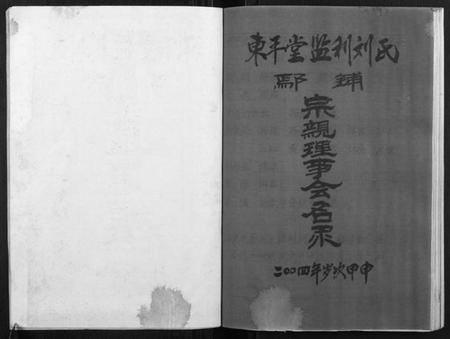 東平堂监利刘氏
鄢鋪
宗親理事会名录
二00四年岁次甲申